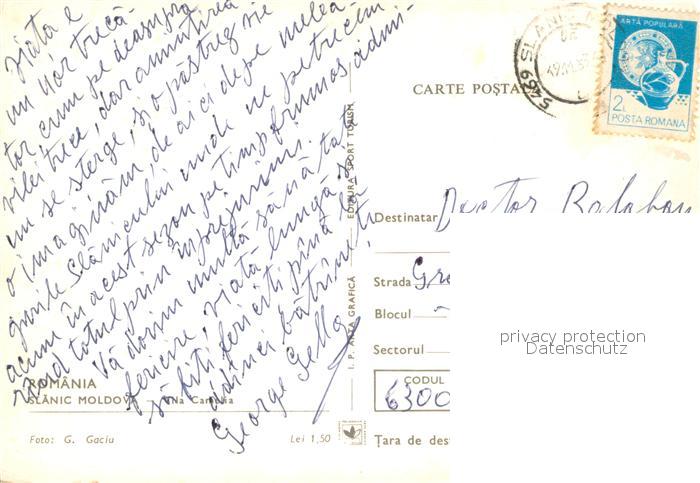 Viata e
un nor trecă-
tor cum pe deasupra
vilei trece, dar amintirea
nu se sterge, si o păstrez vie
o imaginăm, de aici de pe melea-
gurile Slănicului unde ne petrecem
acum în acest sezon pe timp frumos admi-
rînd totul prin împrejurimi.
Vă dorim multă sănăta-
fericire, viată lungă
să fiti fericiti pînă la
adînci bătrîneti
George Gella
ROMÂNIA
SLĂNIC MOLDOVA Vila Camelia
Foto: G. Gaciu
Lei 1,50
I. P. ARTA GRAFICĂ
EDITURA SPORT TURISM
CARTE POȘTALĂ
5469 SLANIC MO
ARTĂ POPULARĂ
2L
POSTA ROMANA
Destinatar Doctor Balaban
Strada Gre
Blocul
Sectorul
CODUL
6300
Țara de des
privacy protection
Datenschutz